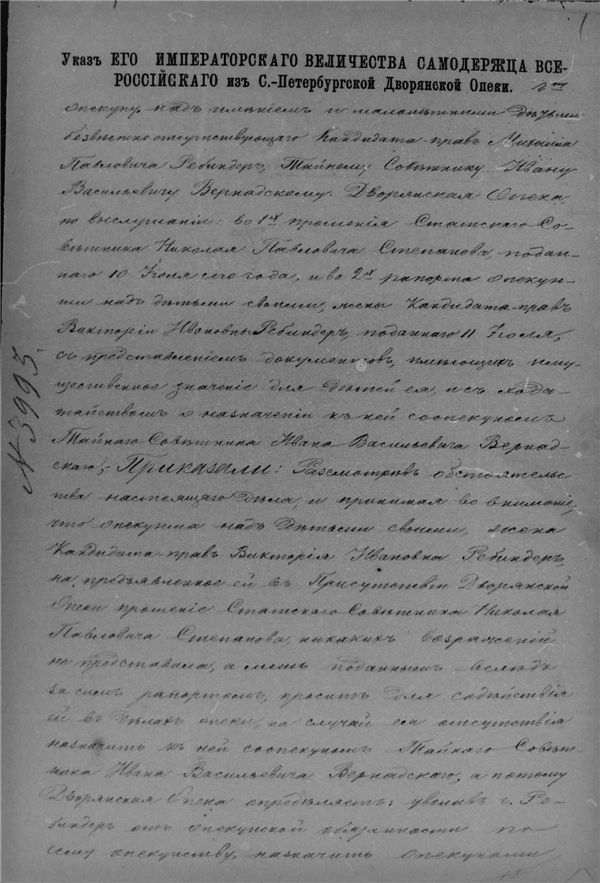 Указъ ЕГО ИМПЕРАТОРСКАГО ВЕЛИЧЕСТВА САМОДЕРЖЦА ВСЕ-
РОССІЙСКАГО изъ С.-Петербургской Дворянской Опеки.
опекуну надъ имѣніемъ и малолѣтними дѣтьми
безвѣстно отсутствующаго Кандидата правъ Михаила
Павловича Ребиндеръ, Тайному Совѣтнику Ивану
Васильевичу Вернадскому. Дворянская Опека,
по выслушаніи: во 1хъ прошенія Статскаго Со-
вѣтника Николая Павловича Степанова, подан-
наго 10 Іюля сего года, и во 2хъ рапорта опекун-
ши надъ дѣтьми своими, жены Кандидата правъ
Викторіи Ивановны Ребиндеръ, поданнаго 11 Іюля,
съ представленіемъ документовъ, имѣющихъ иму-
щественное значеніе для дѣтей ея, и съ хода-
тайствомъ о назначеніи къ ней соопекуномъ
Тайнаго Совѣтника Ивана Васильевича Вернад-
скаго; Приказали: Разсмотрѣвъ обстоятельс-
тва настоящаго дѣла, и принимая во вниманіе,
что опекунша надъ дѣтьми своими, жена
Кандидата правъ Викторія Ивановна Ребиндеръ,
на, предъявленное ей въ Присутствіи Дворянской
Опеки прошеніе Статскаго Совѣтника Николая
Павловича Степанова, никакихъ возраженій
не представила, а лишь поданнымъ вслѣдъ
за симъ рапортомъ, проситъ для содѣйствія
ей въ дѣлахъ опеки, на случай ея отсутствія
назначить къ ней соопекуномъ Тайнаго Совѣт-
ника Ивана Васильевича Вернадскаго, а потому
Дворянская Опека опредѣляетъ: уволивъ г. Ре-
биндеръ отъ опекунской обязанности по
сему опекунству, назначить опекунами,
№ 3995.